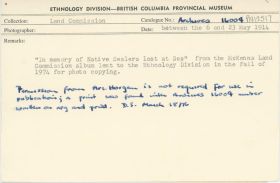 ETHNOLOGY DIVISION—BRITISH COLUMBIA PROVINCIAL MUSEUM
Collection: Land Commission Catalogue No.: Archives 16004
Photographer: Date: between the 6 and 23 May 1914
Remarks:
"In memory of Native Sealers lost at Sea" from the McKenna Land
Commission album lent to the Ethnology Division in the fall of
1974 for photo copying.
Permission from Mrs. Morgan is not required for use in
publications; a print was found with Archives 16004 number
written on neg and print. D.S. March 1976